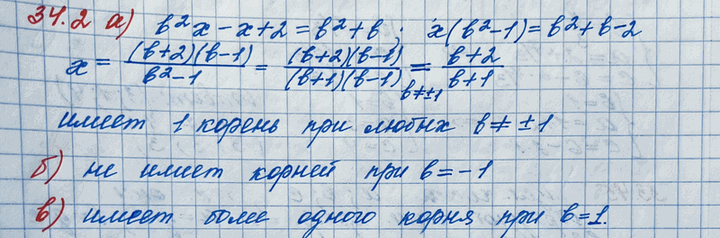 34.2 а) b²x - x + 2 = b² + b; x(b² - 1) = b² + b - 2
x = (b+2)(b-1) / b² - 1 = (b+2)(b-1) / (b+1)(b-1) = b≠±1 b+2 / b+1
имеет 1 корень при любых b ≠ ± 1
б) не имеет корней при b = -1
в) имеет более одного корня при b = 1.